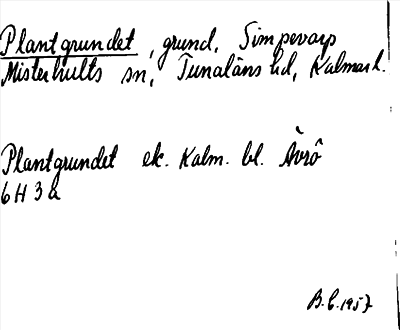 Plantgrundet, grund, Simpevarp
Misterhults sn, Tunaläns hd, Kalmar l.
Plantgrundet ek. Kalm. bl. Ävrö
6H3a
B.C. 1957